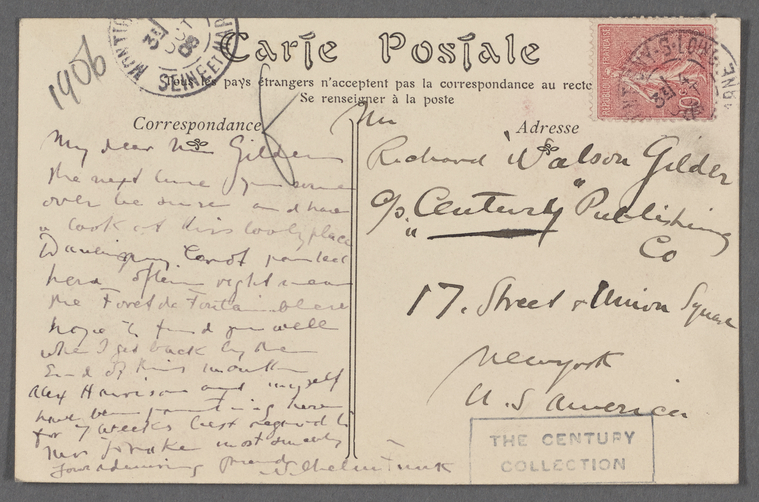 1906
MONTIG
SEINE ET MAR
Carte Postale
Tous les pays étrangers n'acceptent pas la correspondance au recto
Se renseigner à la poste
Correspondance
Adresse
My dear Mr Gilder
the next time you come
over be sure and have
a look at this lovely place
Daubigny Corot painted
here often right near
the Foret de Fontainebleau
hope to find you well
when I get back by the
End of this month
Alex Harrison and myself
have been painting here
for 7 weeks best regards to
most sincerely
Your admiring friend Wilhelm Funk
Mr
Richard Watson Gilder
c/o "Century" Publishing
Co
17. Street & Union Square
Newyork
U. S America
THE CENTURY
COLLECTION